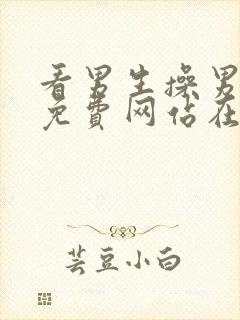 看男生操男
免費网估在
芸豆小白